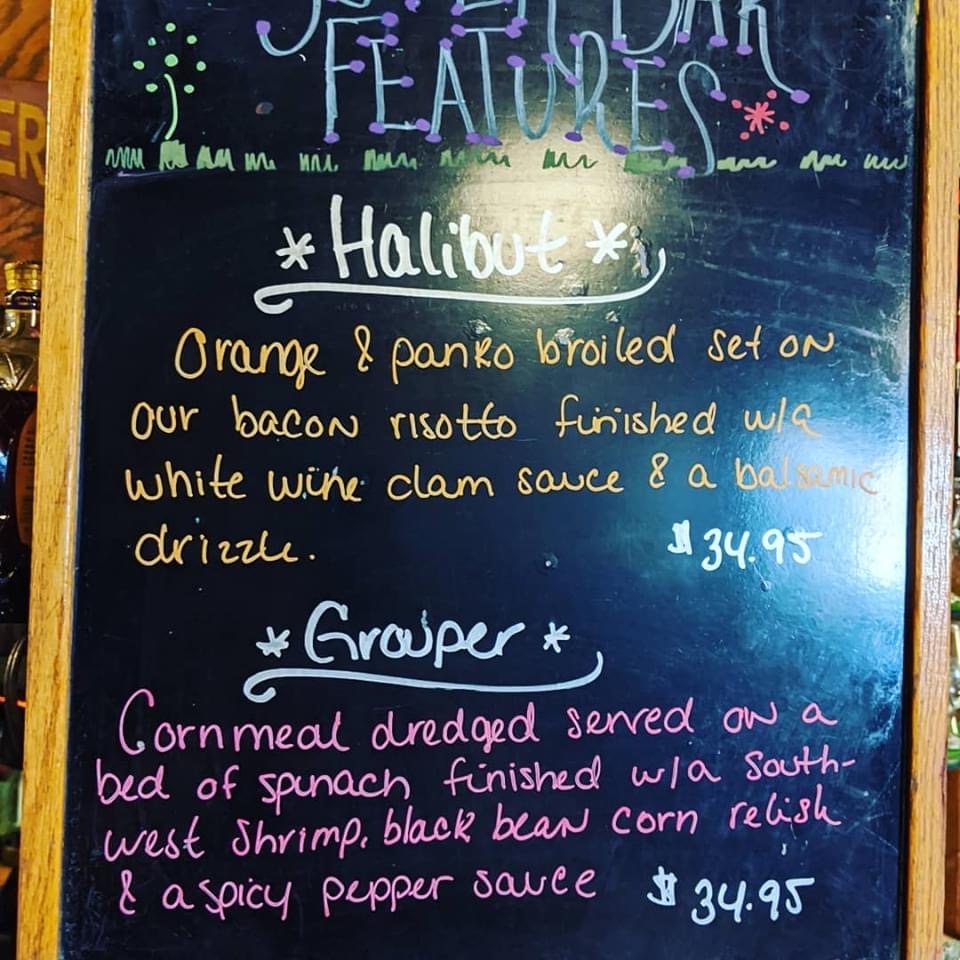 FEATURES
*Halibut*
Orange & panko broiled set on
our bacon risotto finished w/a
white wine clam sauce & a balsamic
drizzle.
$34.95
*Grouper*
Cornmeal dredged served on a
bed of spinach finished w/a South-
west Shrimp, black bean corn relish
& a spicy pepper sauce $34.95